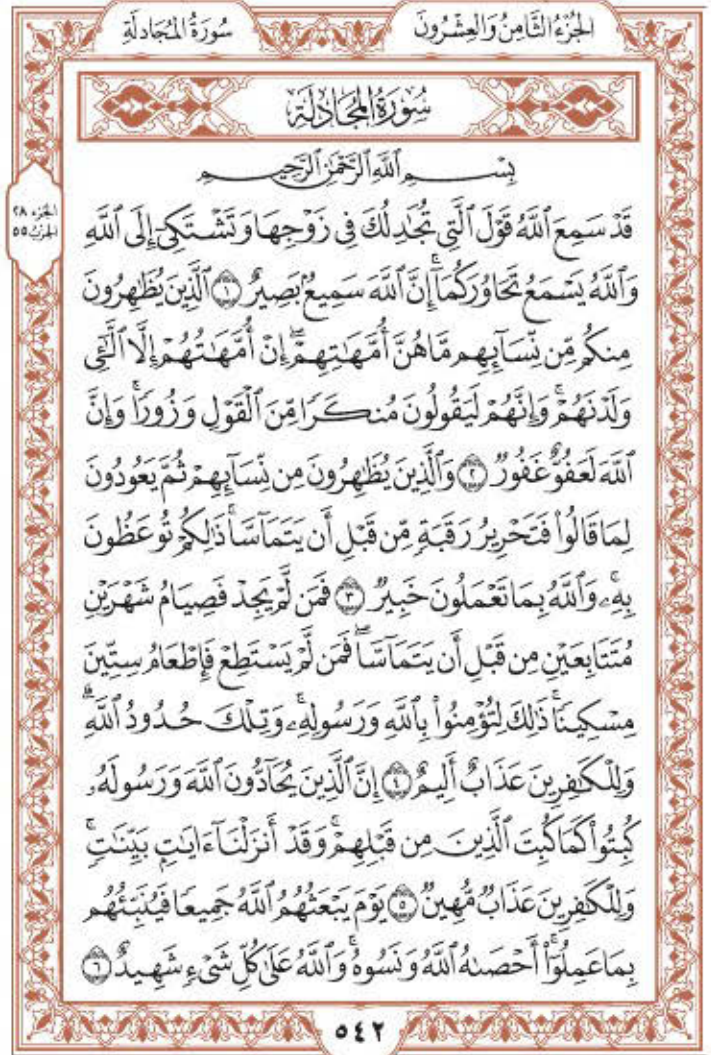 الجُزْءُ الثَّامِنُ وَالعِشْرُونَ
سُورَةُ المُجَادلَةِ
سُورَةُ المُجَادلَةِ
بِسْمِ ٱللَّهِ ٱلرَّحْمَٰنِ ٱلرَّحِيمِ
الجزء ٢٨
الحزب ٥٥
قَدْ سَمِعَ ٱللَّهُ قَوْلَ ٱلَّتِى تُجَٰدِلُكَ فِى زَوْجِهَا وَتَشْتَكِىٓ إِلَى ٱللَّهِ
وَٱللَّهُ يَسْمَعُ تَحَاوُرَكُمَآۚ إِنَّ ٱللَّهَ سَمِيعٌۢ بَصِيرٌ ١ ٱلَّذِينَ يُظَٰهِرُونَ
مِنكُم مِّن نِّسَآئِهِم مَّا هُنَّ أُمَّهَٰتِهِمْۖ إِنْ أُمَّهَٰتُهُمْ إِلَّا ٱلَّٰٓـِٔى
وَلَدْنَهُمْۚ وَإِنَّهُمْ لَيَقُولُونَ مُنكَرًا مِّنَ ٱلْقَوْلِ وَزُورًاۚ وَإِنَّ
ٱللَّهَ لَعَفُوٌّ غَفُورٌ ٢ وَٱلَّذِينَ يُظَٰهِرُونَ مِن نِّسَآئِهِمْ ثُمَّ يَعُودُونَ
لِمَا قَالُوا۟ فَتَحْرِيرُ رَقَبَةٍ مِّن قَبْلِ أَن يَتَمَآسَّاۚ ذَٰلِكُمْ تُوعَظُونَ
بِهِۦۚ وَٱللَّهُ بِمَا تَعْمَلُونَ خَبِيرٌ ٣ فَمَن لَّمْ يَجِدْ فَصِيَامُ شَهْرَيْنِ
مُتَتَابِعَيْنِ مِن قَبْلِ أَن يَتَمَآسَّاۖ فَمَن لَّمْ يَسْتَطِعْ فَإِطْعَامُ سِتِّينَ
مِسْكِينًاۚ ذَٰلِكَ لِتُؤْمِنُوا۟ بِٱللَّهِ وَرَسُولِهِۦۚ وَتِلْكَ حُدُودُ ٱللَّهِۗ
وَلِلْكَٰفِرِينَ عَذَابٌ أَلِيمٌ ٤ إِنَّ ٱلَّذِينَ يُحَآدُّونَ ٱللَّهَ وَرَسُولَهُۥ
كُبِتُوا۟ كَمَا كُبِتَ ٱلَّذِينَ مِن قَبْلِهِمْۚ وَقَدْ أَنزَلْنَآ ءَايَٰتٍۭ بَيِّنَٰتٍۚ
وَلِلْكَٰفِرِينَ عَذَابٌ مُّهِينٌ ٥ يَوْمَ يَبْعَثُهُمُ ٱللَّهُ جَمِيعًا فَيُنَبِّئُهُم
بِمَا عَمِلُوٓا۟ۚ أَحْصَىٰهُ ٱللَّهُ وَنَسُوهُۚ وَٱللَّهُ عَلَىٰ كُلِّ شَىْءٍ شَهِيدٌ ٦
٥٤٢